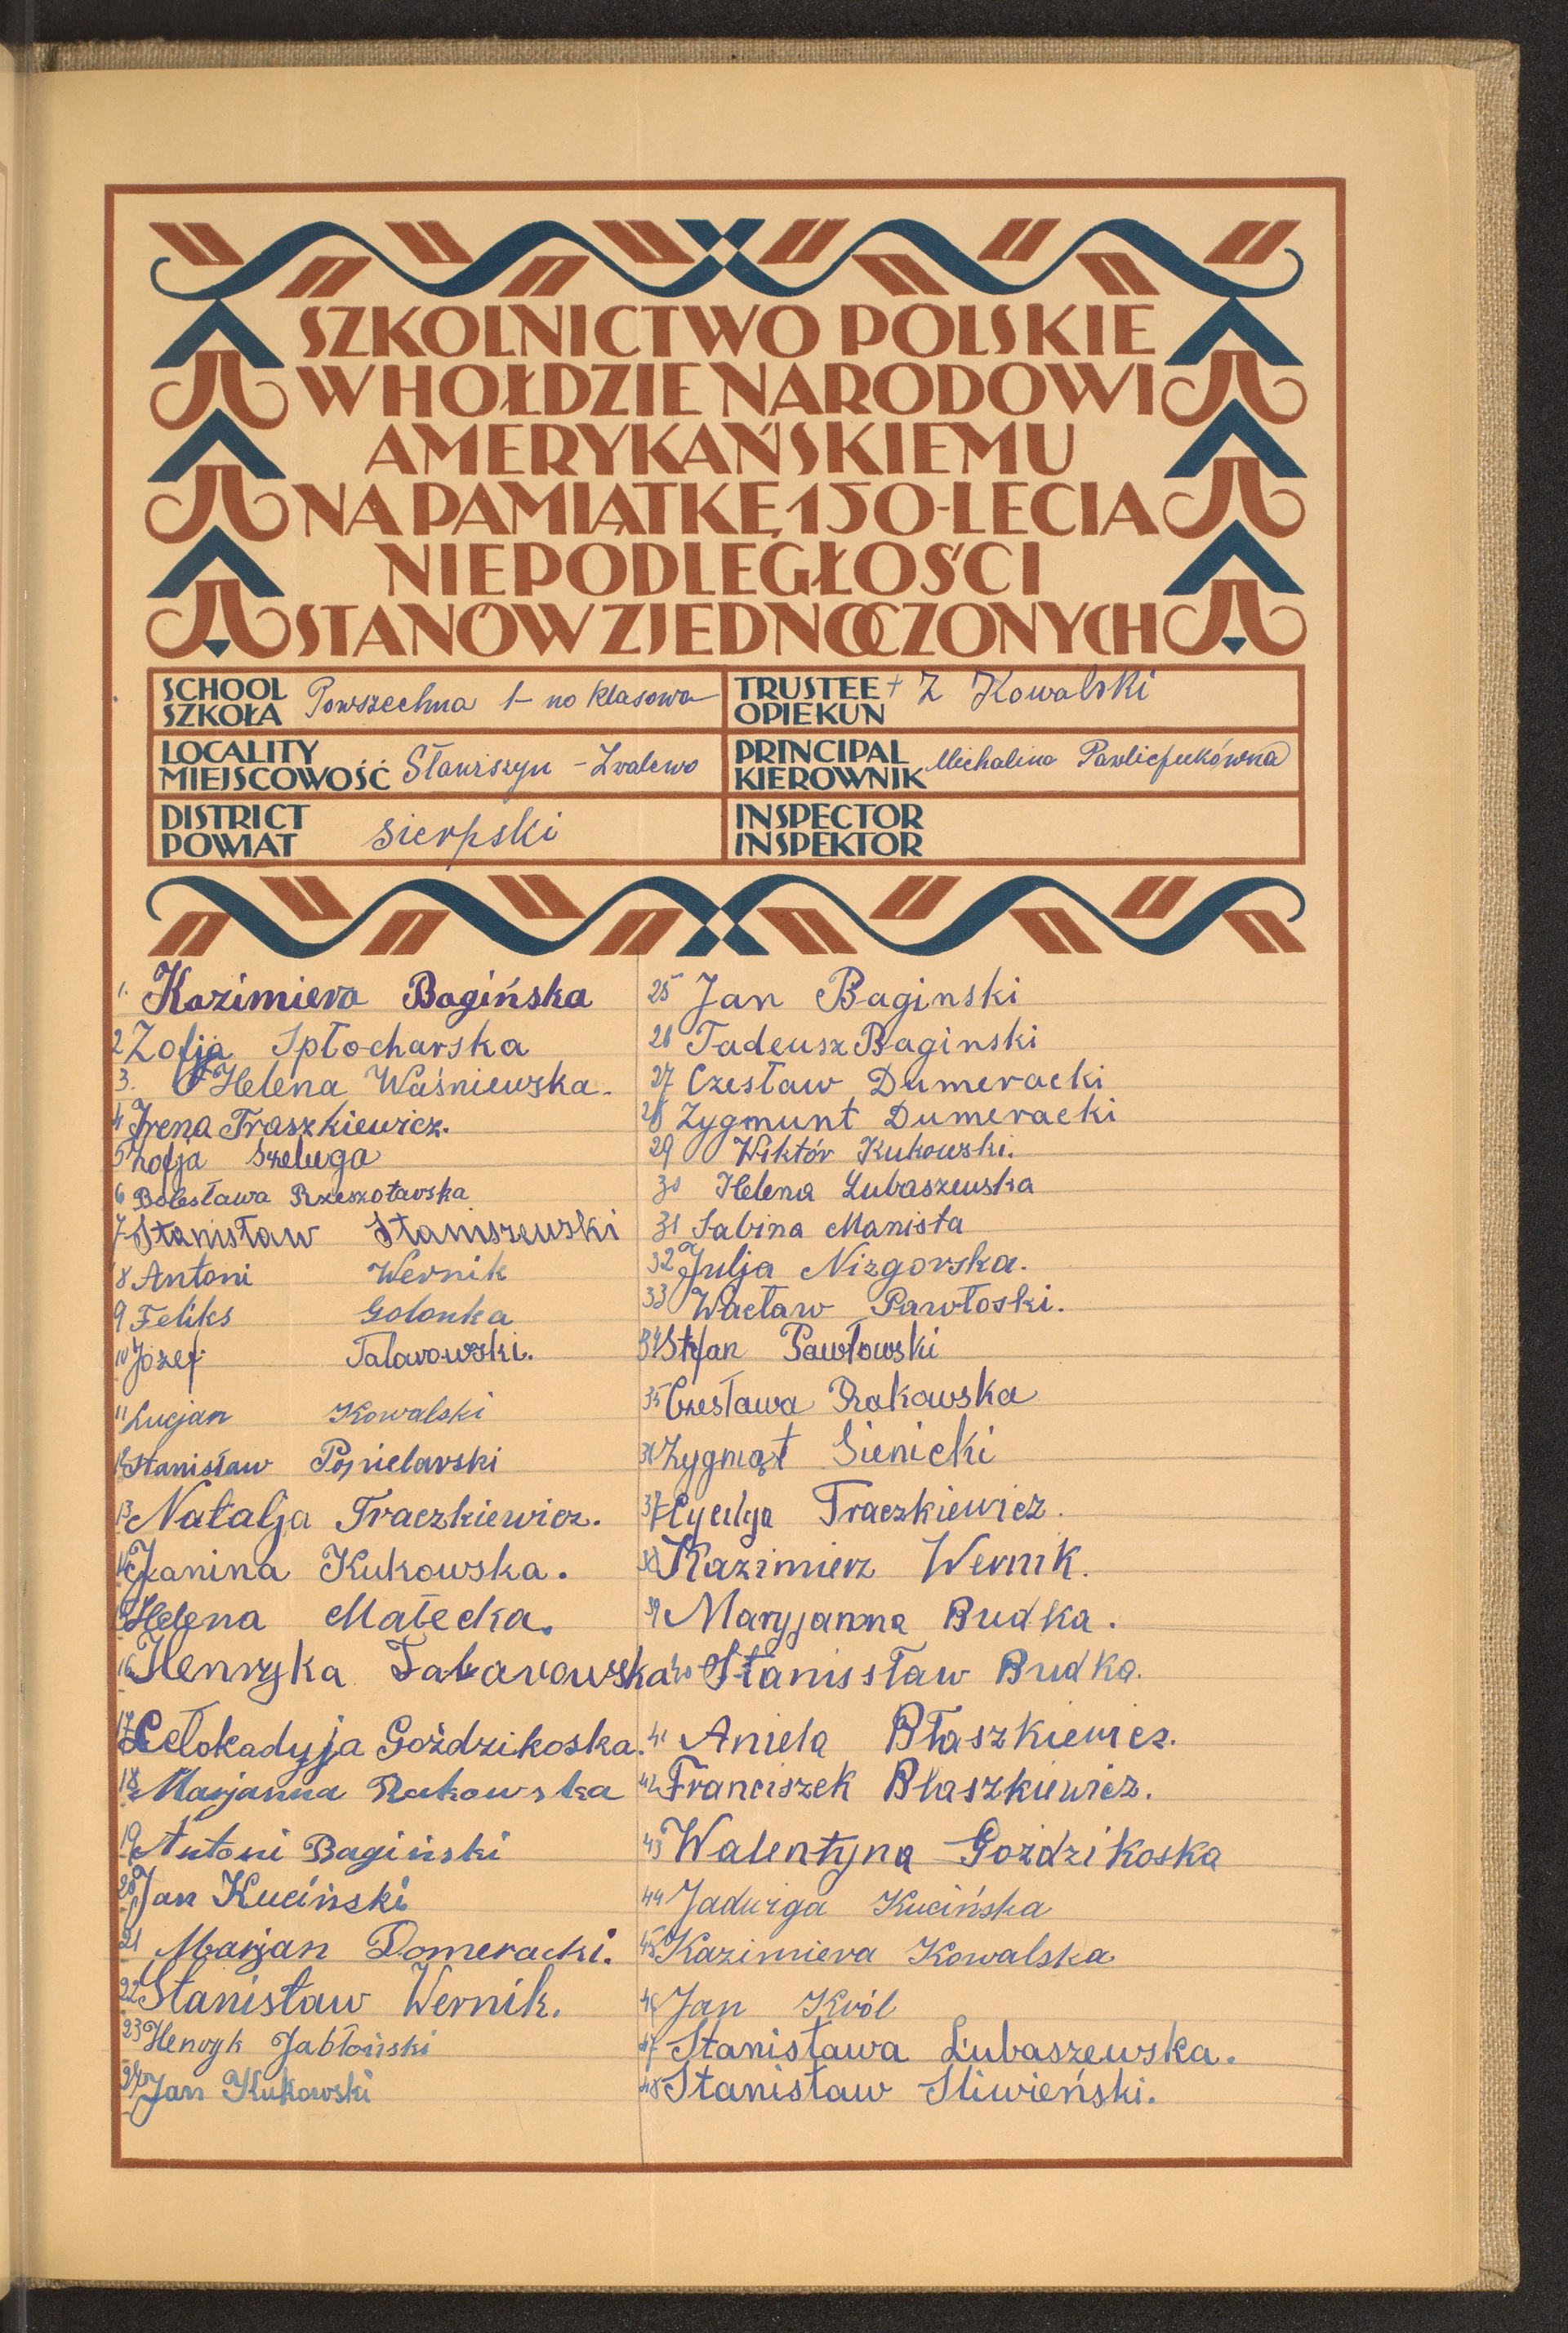 SZKOLNICTWO POLSKIE
W HOŁDZIE NARODOWI
AMERYKAŃSKIEMU
NA PAMIĄTKĘ 150-LECIA
NIEPODLEGŁOŚCI
STANÓW ZJEDNOCZONYCH
SCHOOL
SZKOŁA Powszechna 1-no klasowa
TRUSTEE
OPIEKUN + Z Kowalski
LOCALITY
MIEJSCOWOŚĆ Sławiszyn - Zvalewo
PRINCIPAL
KIEROWNIK Michalina
DISTRICT
POWIAT Sierpski
INSPECTOR
INSPEKTOR
1. Kazimiera Bagińska
2 Zofja Spłocharska
3. Helena Waśniewska.
4 Irena Traszkiewicz.
5 Zofja Szeluga
6 Bolesława Rzeszotarska
7 Stanisław Staniszewski
8 Antoni Wernik
9 Feliks Golonka
10 Józef Talarowski.
11 Lucjan Kowalski
12 Stanisław Popielarski
13 Natalja Traczkiewicz.
14 Janina Kukowska.
15 Helena Małecka.
16 Henryka Talarowska
17 Lełokadyja Goździkoska.
18 Marjanna Rakowska
19 Antoni Bagiński
20 Jan Kuciński
21 Marjan Domeracki.
22 Stanisław Wernik.
23 Henryk Jabłoński
24 Jan Kukowski
25 Jan Baginski
26 Tadeusz Baginski
27 Czesław Dumeracki
28 Zygmunt Dumeracki
29 Wiktór Kukowski.
30 Helena Lubaszewska
31 Sabina Manista
32 Julja Nizgorska.
33 Wacław Pawłoski.
34 Stefan Pawłowski
35 Czesława Rakowska
36 Zygmąt Sienicki
37 Traczkiewicz.
38 Kazimierz Wernik.
39 Maryjanna Budka.
40 Stanissław Budka.
41 Aniela Błaszkiewicz.
42 Franciszek Błaszkiewicz.
43 Walentyna Goździkoska
44 Jadwiga Kucińska
45 Kazimiera Kowalska
46 Jan Król
47 Stanisława Lubaszewska.
48 Stanisław Sliwieński.